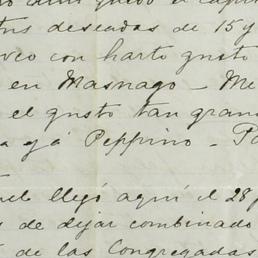 tus deseadas de 15 y
veo con harto gusto
en Masnago - Me
el gusto tan gran
a yá Peppino - Pa
llegó aquí el 28
de dejar combinado
de las Congregadas